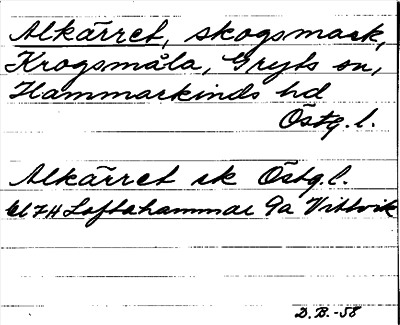 Alkärret, skogsmark,
Krogsmåla, Gryts sn,
Hammarkinds hd
Östg.l.
Alkärret ek Östg.l.
bl 7H Loftahammar 9a Vittvik
D.B.-58